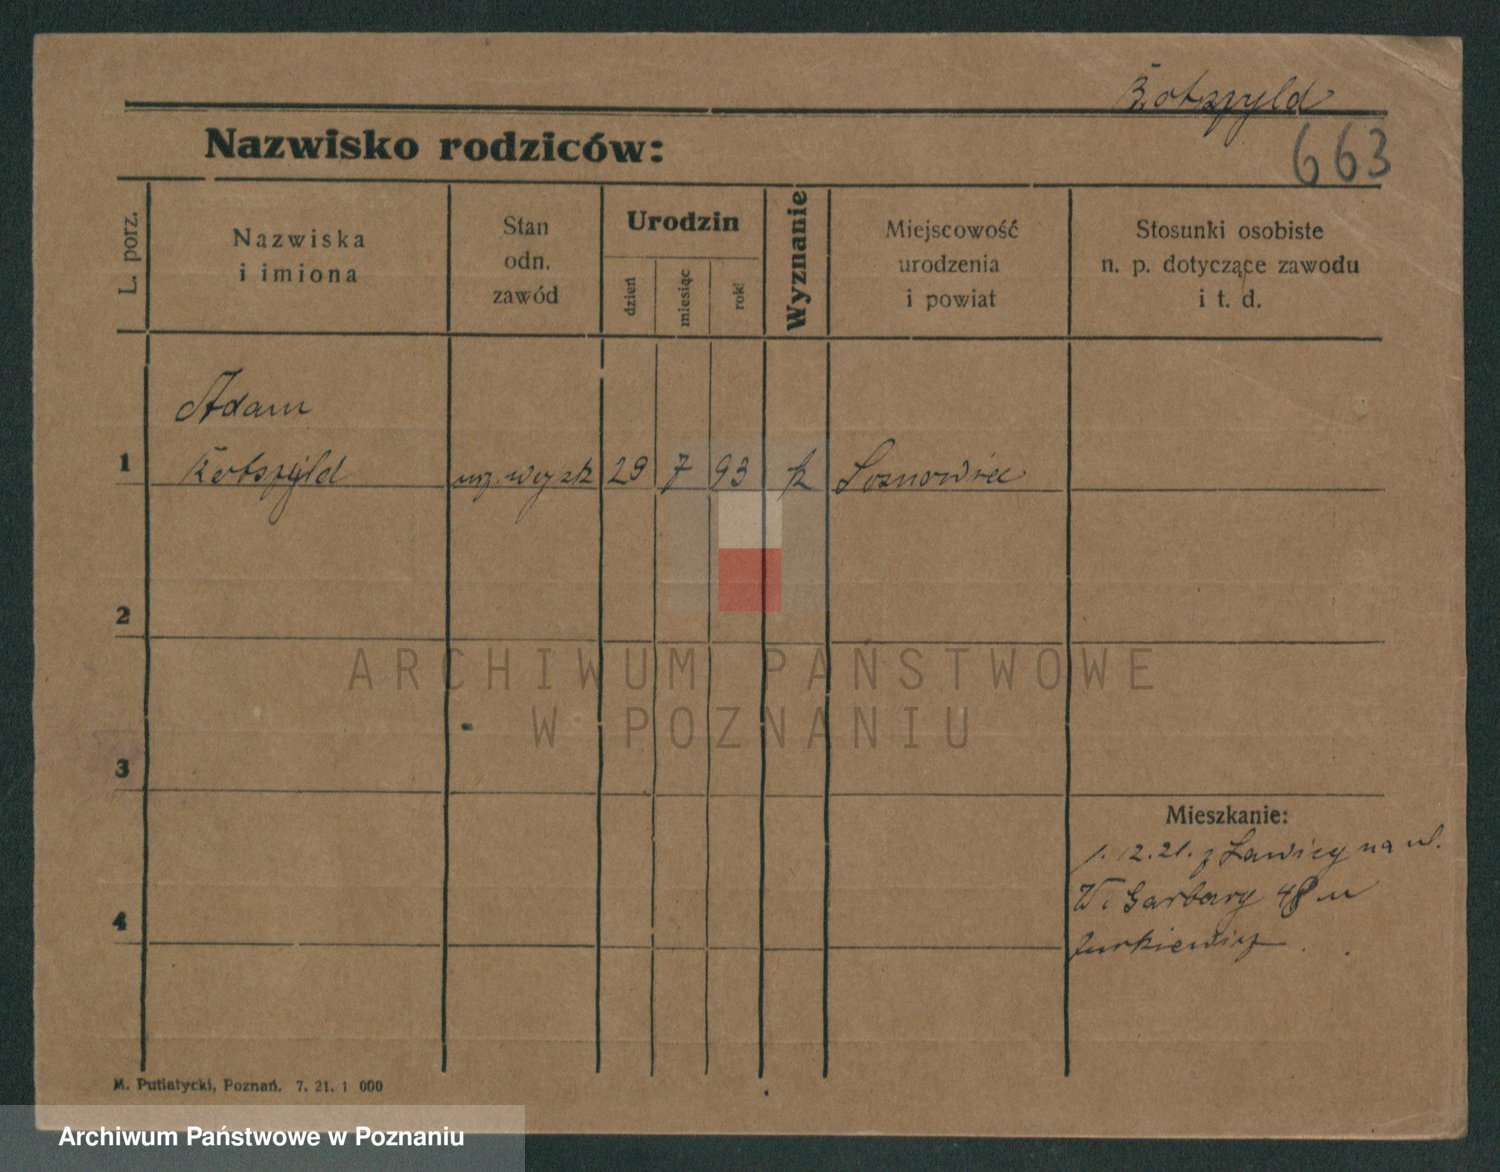 Kobszyld
663
Nazwisko rodziców:
L. porz.
Nazwiska
i imiona
Stan
odn.
zawód
Urodzin
dzień
miesiąc
rok
Wyznanie
Miejscowość
urodzenia
i powiat
Stosunki osobiste
n. p. dotyczące zawodu
i t. d.
Adam
1 29 7 93 k Sosnowiec
2
ARCHIWUM PAŃSTWOWE
W POZNANIU
3
Mieszkanie:
1.12.21. z Ławicy na ul.
4 W. Garbary 48 u
Jurkiewicz
M. Putiatycki, Poznań. 7. 21. 1 000
Archiwum Państwowe w Poznaniu